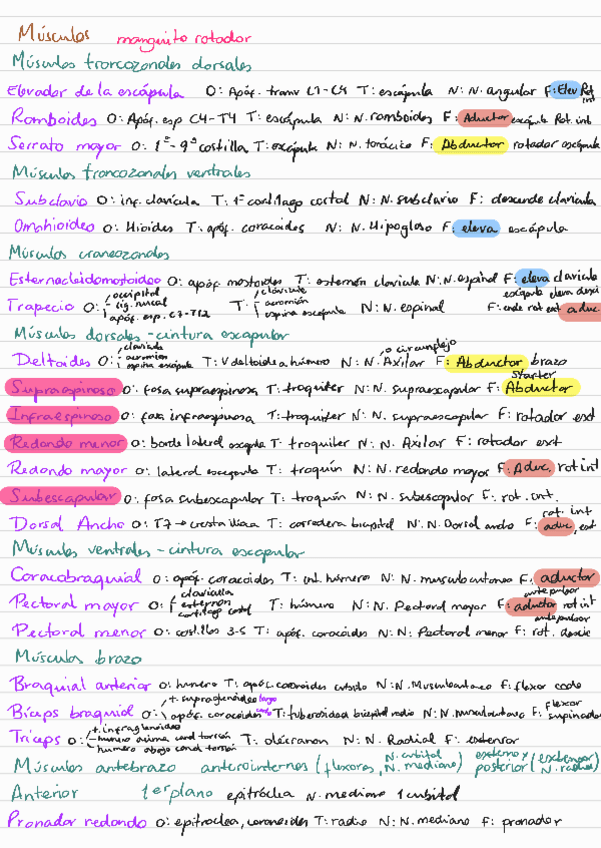 Músculos manguito rotador
Músculos troncozonales dorsales
Elevador de la escápula O: Apóf. transv C1-C4 T: escápula N: N. angular F: Elev Rot int
Romboides O: Apóf. esp C4-T4 T: escápula N: N. romboides F: Aductor escápula Rot. int
Serrato mayor O: 1ª-9ª costilla T: escápula N: N. torácico F: Abductor rotador escápula
Músculos troncozonales ventrales
Subclavio O: inf. clavícula T: 1º cartílago costal N: N. subclavio F: desciende clavícula
Omohioideo O: Hioides T: apóf. coracoides N: N. Hipogloso F: eleva escápula
Músculos craneozonales
Esternocleidomastoideo O: apóf mastoides T: esternón clavícula N: N. espinal F: eleva clavícula
Trapecio O: occipital lig. nucal apóf. esp. C7-T12 T: clavícula acromión espina escápula N: N. espinal F: escápula eleva desci rot ext aduc.
Músculos dorsales - cintura escapular
Deltoides O: clavícula acromion espina escápula T: V deltoidea húmero N: N. Axilar o circunflejo F: Abductor brazo
Supraespinoso O: fosa supraespinosa T: troquiter N: N. supraescapular F: Abductor starter
Infraespinoso O: fosa infraespinosa T: troquiter N: N. supraescapular F: rotador ext
Redondo menor O: borde lateral escápula T: troquiter N: N. Axilar F: rotador ext
Redondo mayor O: lateral escápula T: troquín N: N. redondo mayor F: Aduc. rot int
Subescapular O: fosa subescapular T: troquín N: N. subescapular F: rot. int.
Dorsal Ancho O: T7 → cresta ilíaca T: corredera bicipital N: N. Dorsal ancho F: rot. int aduc, ext
Músculos ventrales - cintura escapular
Coracobraquial O: apóf. coracoides T: int. húmero N: N. musculocutaneo F: aductor antepulsor
Pectoral mayor O: clavícula esternon cartílago costal T: húmero N: N. Pectoral mayor F: aductor rot int antepulsor
Pectoral menor O: costillas 3-5 T: apóf. coracoides N: N. Pectoral menor F: rot. descie
Músculos brazo
Braquial anterior O: humero T: apóf. coronoides cubito N: N. Musculocutaneo F: flexor codo
Bíceps braquial O: t. supraglenoideo largo apóf. coracoides corto T: tuberosidad bicipital radio N: N. musculocutaneo F: flexor supinador
Tríceps O: t. infraglenoideo humero arriba canal torsión humero abajo canal torsión T: olécranon N: N. Radial F: extensor
Músculos antebrazo anterointernos (flexores, N. cubital N. mediano) externo y posterior (extensor N. radial)
Anterior 1er plano epitróclea N. mediano 1 cubital
Pronador redondo O: epitroclea, coronoides T: radio N: N. mediano F: pronador